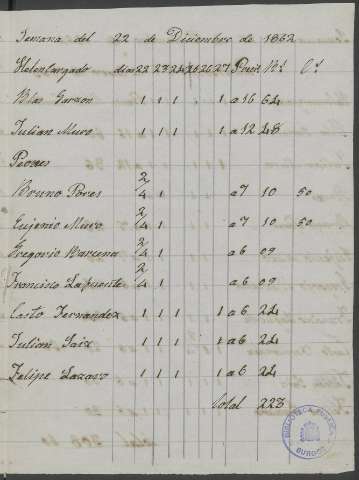 Semana del 22 de Diciembre de 1862
El Encargado dias 22 23 24 25 26 27 Precio Rs Cs
Blas Garzon 1 1 1 1 a 16 64
Julian Muro 1 1 1 1 a 12 48
Peones
Bruno Pores 2/4 1 a 7 10 50
Eugenio Muro 2/4 1 a 7 10 50
Gregorio Barcena 2/4 1 a 6 09
Francisco Lapuente 2/4 1 a 6 09
Casto Fernandez 1 1 1 1 a 6 24
Julian Saiz 1 1 1 1 a 6 24
Felipe Lazaro 1 1 1 1 a 6 24
Total 223
BIBLIOTECA PUBLICA
BURGOS